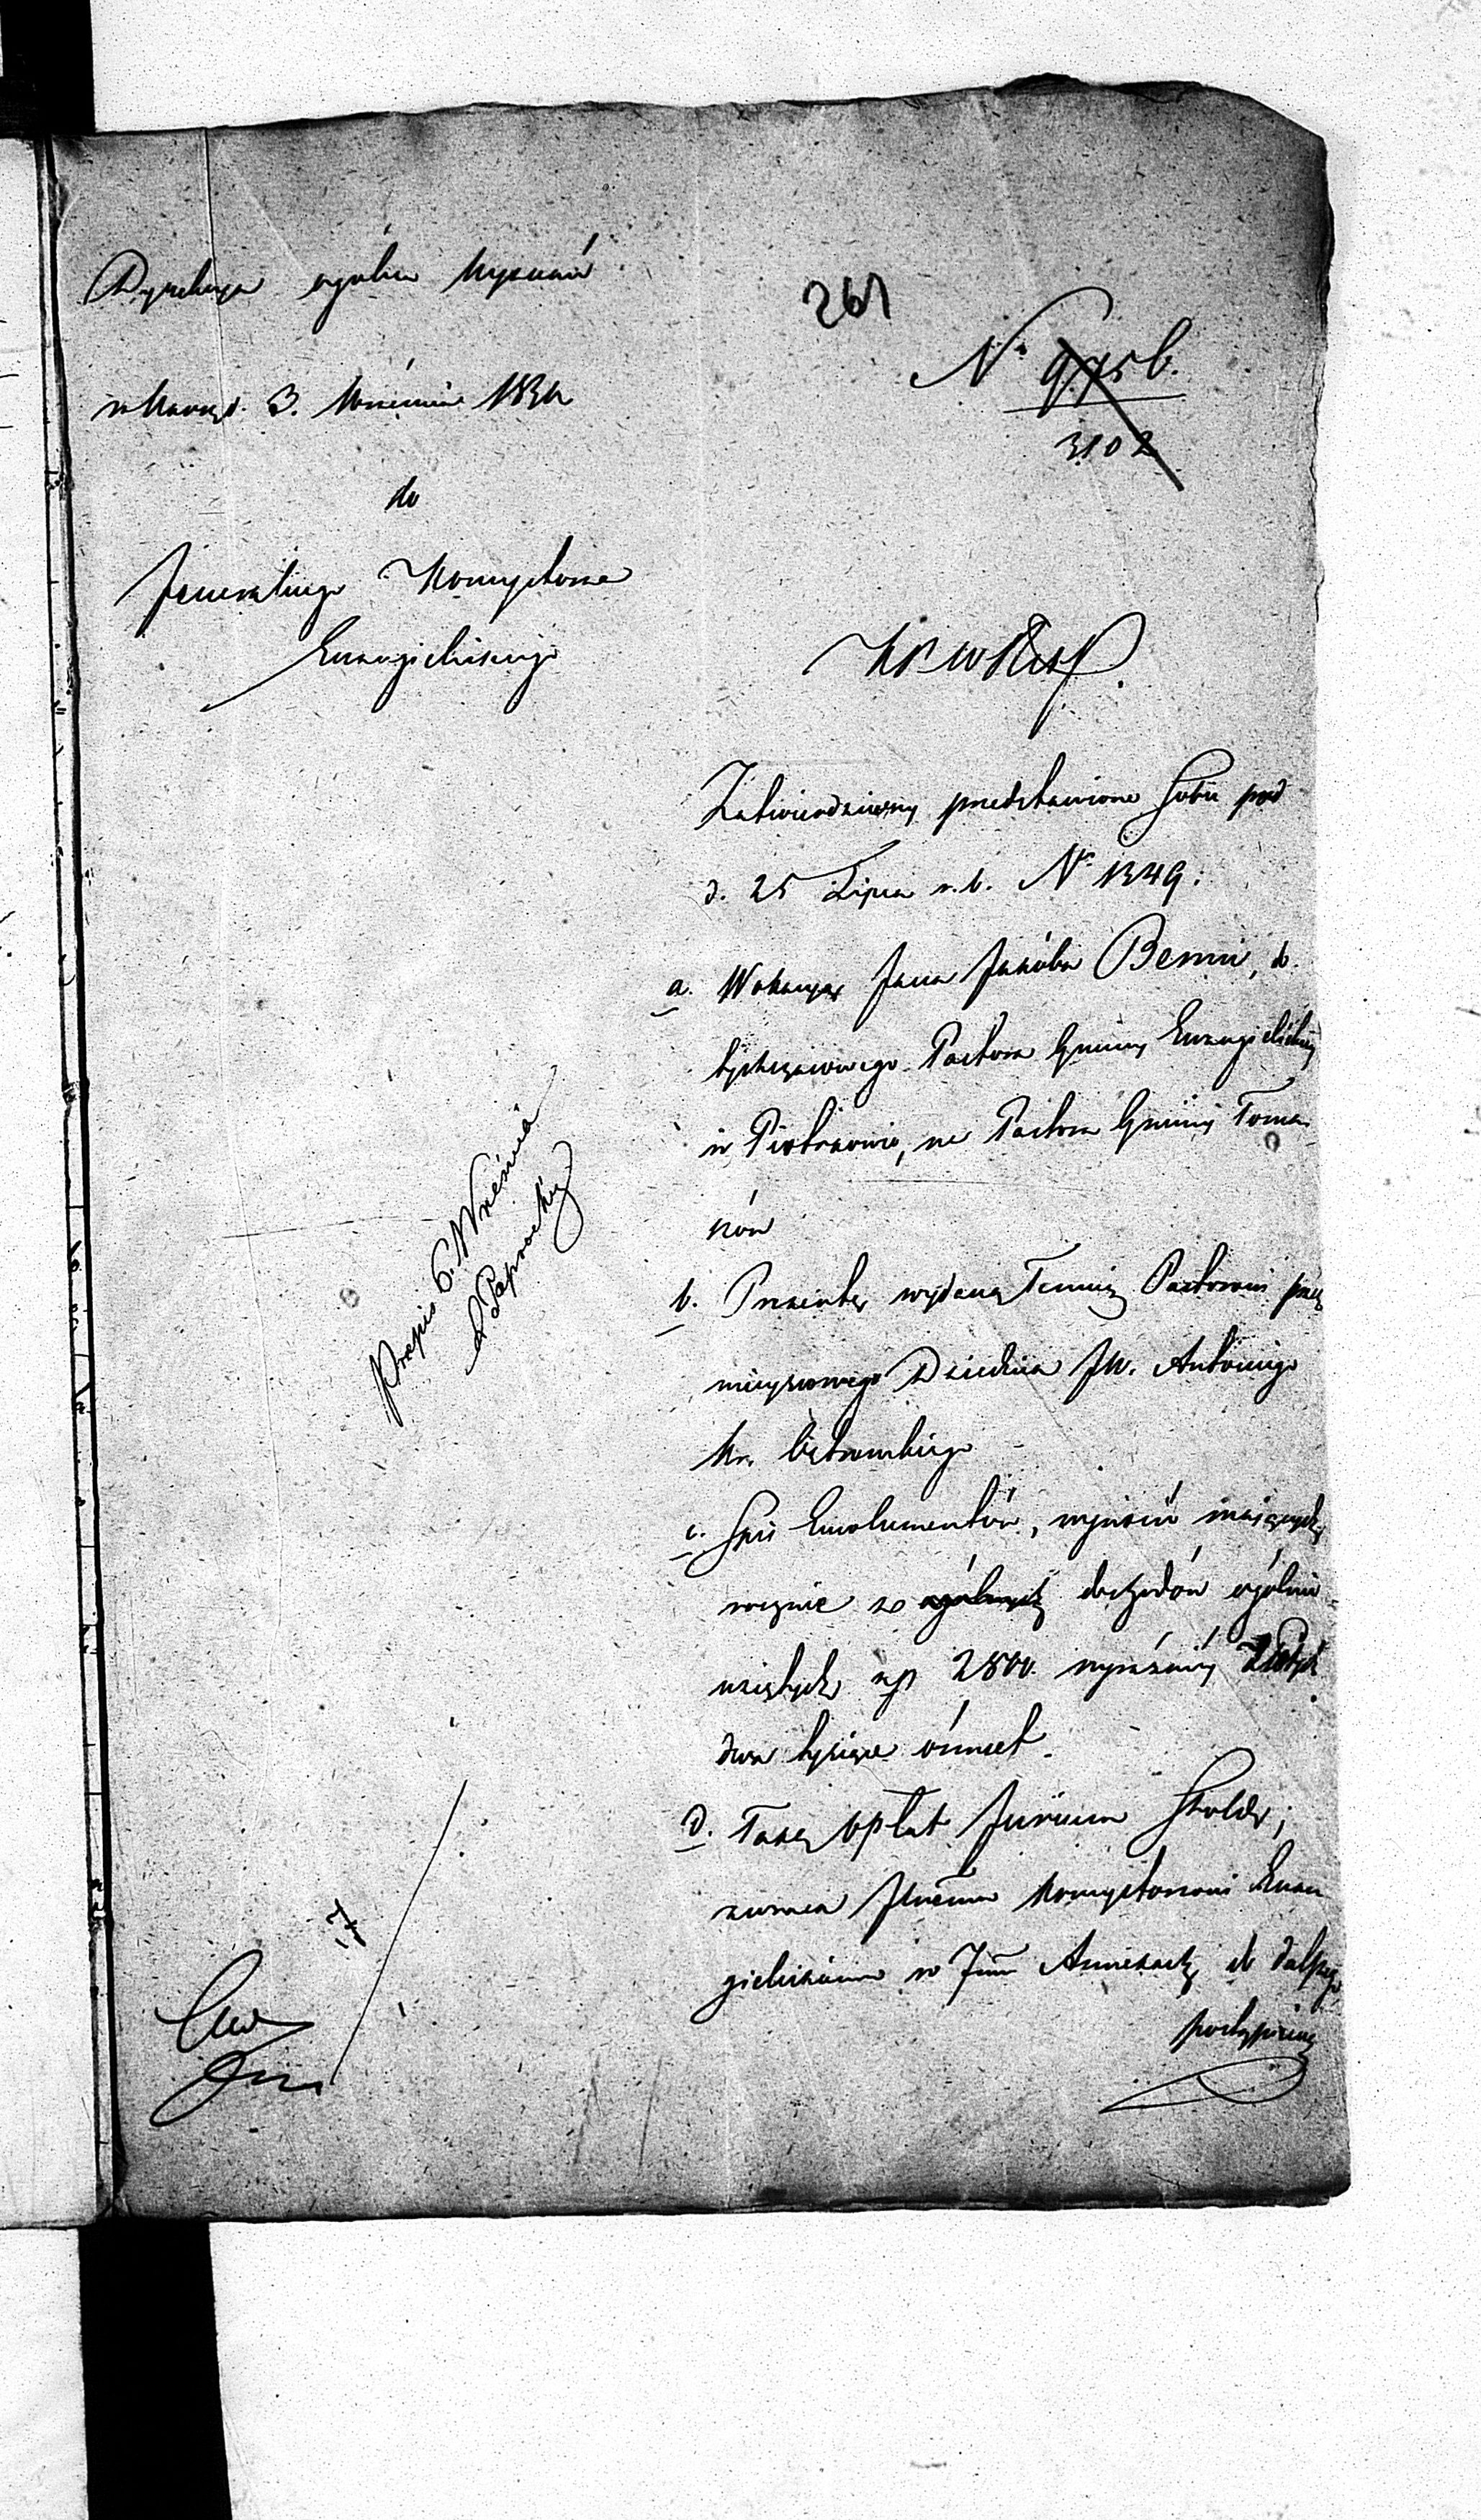 Dyrekcya ogólna Wyznań
261
N. 975b.
3102
w Warsz. d. 3. Września 1834
do
Jeneralnego Konsystorza
Ewangielickiego
KRWRiOP.
Zatwierdziwszy przedstawione Sobie pod
d. 25 Lipca r. b. Nr 1349:
a. Wokacyą Jana Jakóba Benni, do-
tychczasowego Pastora Gminy Ewangielickiej
w Piotrkowie, na Pastora Gminy Toma-
szów
b. Prezentę wydaną Temuż Pastorowi przez
mieyscowego Dziedzica JW. Antoniego
Hr. Ostrowskiego
c. Spis Emolumentów, wynosić maiących
rocznie z ogólnych dochodów ogólnie
wziętych zp 2800. wyraźniey Złotych
dwa tysiące ośmset.
d. Taxę opłat Jurium Stolae;
zwraca Jlnemu Konsystorzowi Ewan-
gielickiemu w Annexach do dalszego
postąpienia
Przepis 6. Września
Paprocki